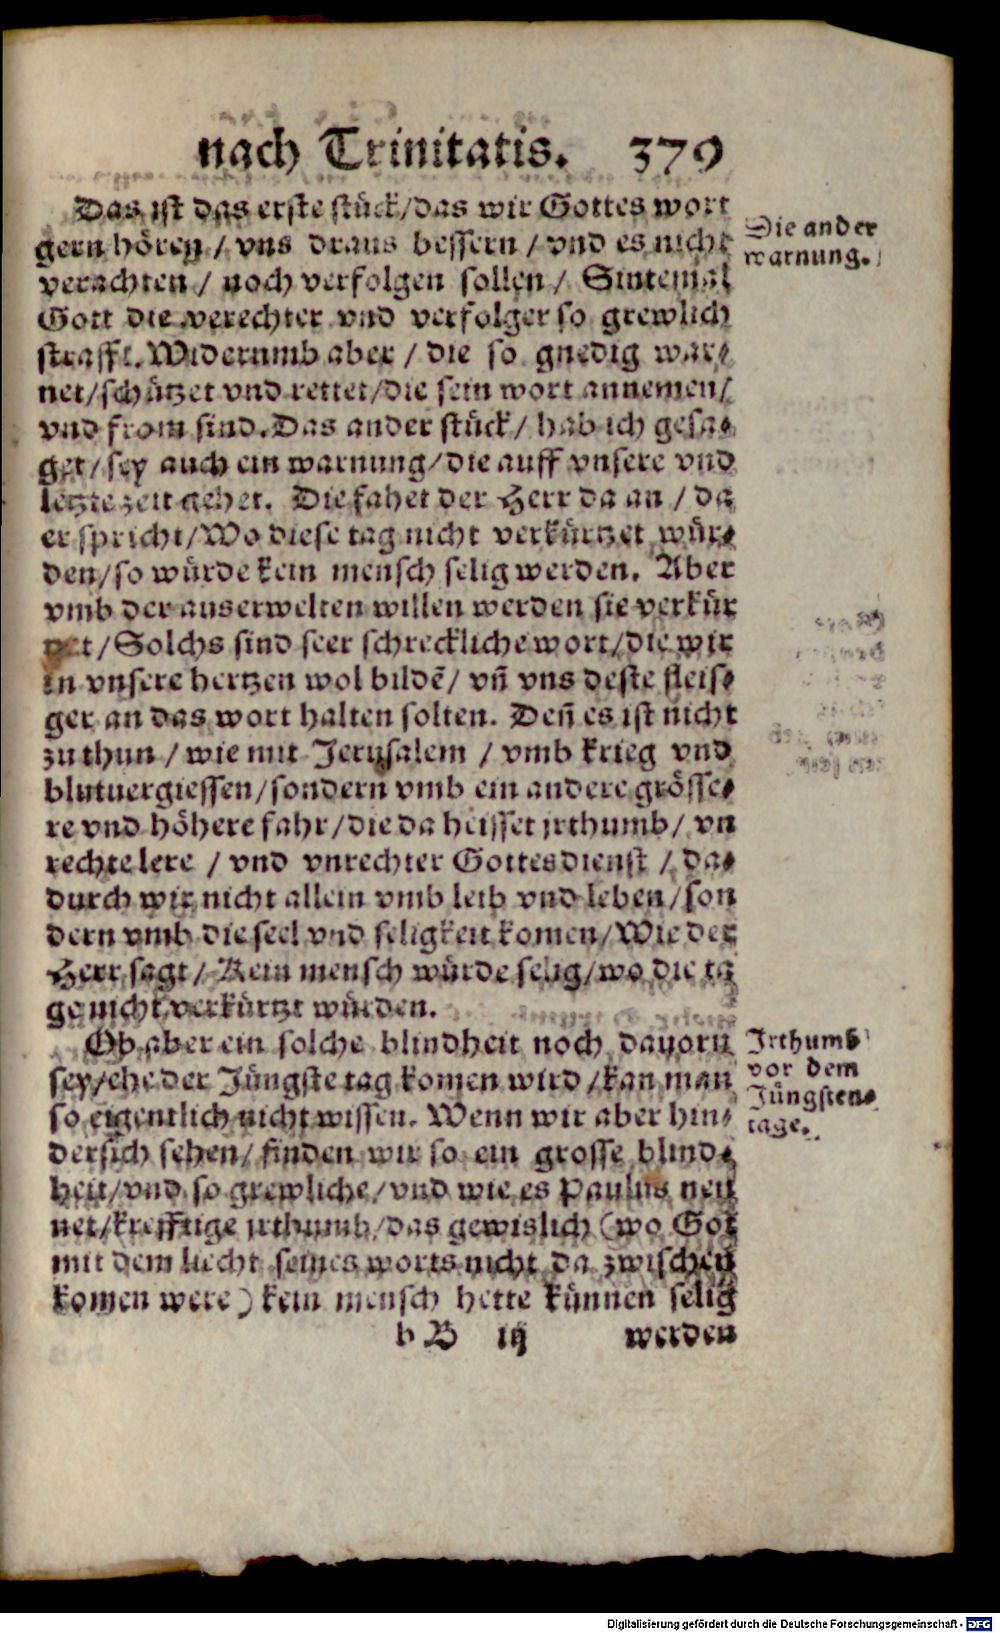 nach Trinitatis. 379
Das ist das erste stück/das wir Gottes wort
gern hören / vns draus bessern / vnd es nicht
verachten / noch verfolgen sollen / Sintemal
Gott die verechter vnd verfolger so grewlich
strafft. Widerumb aber / die so gnedig war⸗
net/schützet vnd rettet/die sein wort annemen/
vnd from sind. Das ander stück/ hab ich gesa⸗
get/sey auch ein warnung/die auff vnsere vnd
letzte zeit gehet. Die fahet der Herr da an / da
er spricht/Wo diese tag nicht verkürtzet wür⸗
den/so würde kein mensch selig werden. Aber
vmb der auserwelten willen werden sie verkür
tzet/Solchs sind seer schreckliche wort/die wir
in vnsere hertzen wol bildē/ vñ vns deste fleis⸗
ger an das wort halten solten. Deñ es ist nicht
zu thun / wie mit Jerusalem / vmb krieg vnd
blutuergiessen/sondern vmb ein andere grösse⸗
re vnd höhere fahr/die da heisset jrthumb/ vn
rechte lere / vnd vnrechter Gottesdienst / da⸗
durch wir nicht allein vmb leib vnd leben/son
dern vmb die seel vnd seligkeit komen/Wie der
Herr sagt/ Kein mensch würde selig/wo die ta
ge nicht verkürtzt würden.
Ob aber ein solche blindheit noch dauorn
sey/ehe der Jüngste tag komen wird/kan man
so eigentlich nicht wissen. Wenn wir aber hin⸗
dersich sehen/ finden wir so ein grosse blind⸗
heit/vnd so grewliche/vnd wie es Paulus nen
net/krefftige jrthumb/das gewislich (wo Got
mit dem liecht seines worts nicht da zwischen
komen were) kein mensch hette können selig
b B iij werden
Die ander
warnung.
Jrthumb
vor dem
Jüngsten⸗
tage.
Digitalisierung gefördert durch die Deutsche Forschungsgemeinschaft - DFG